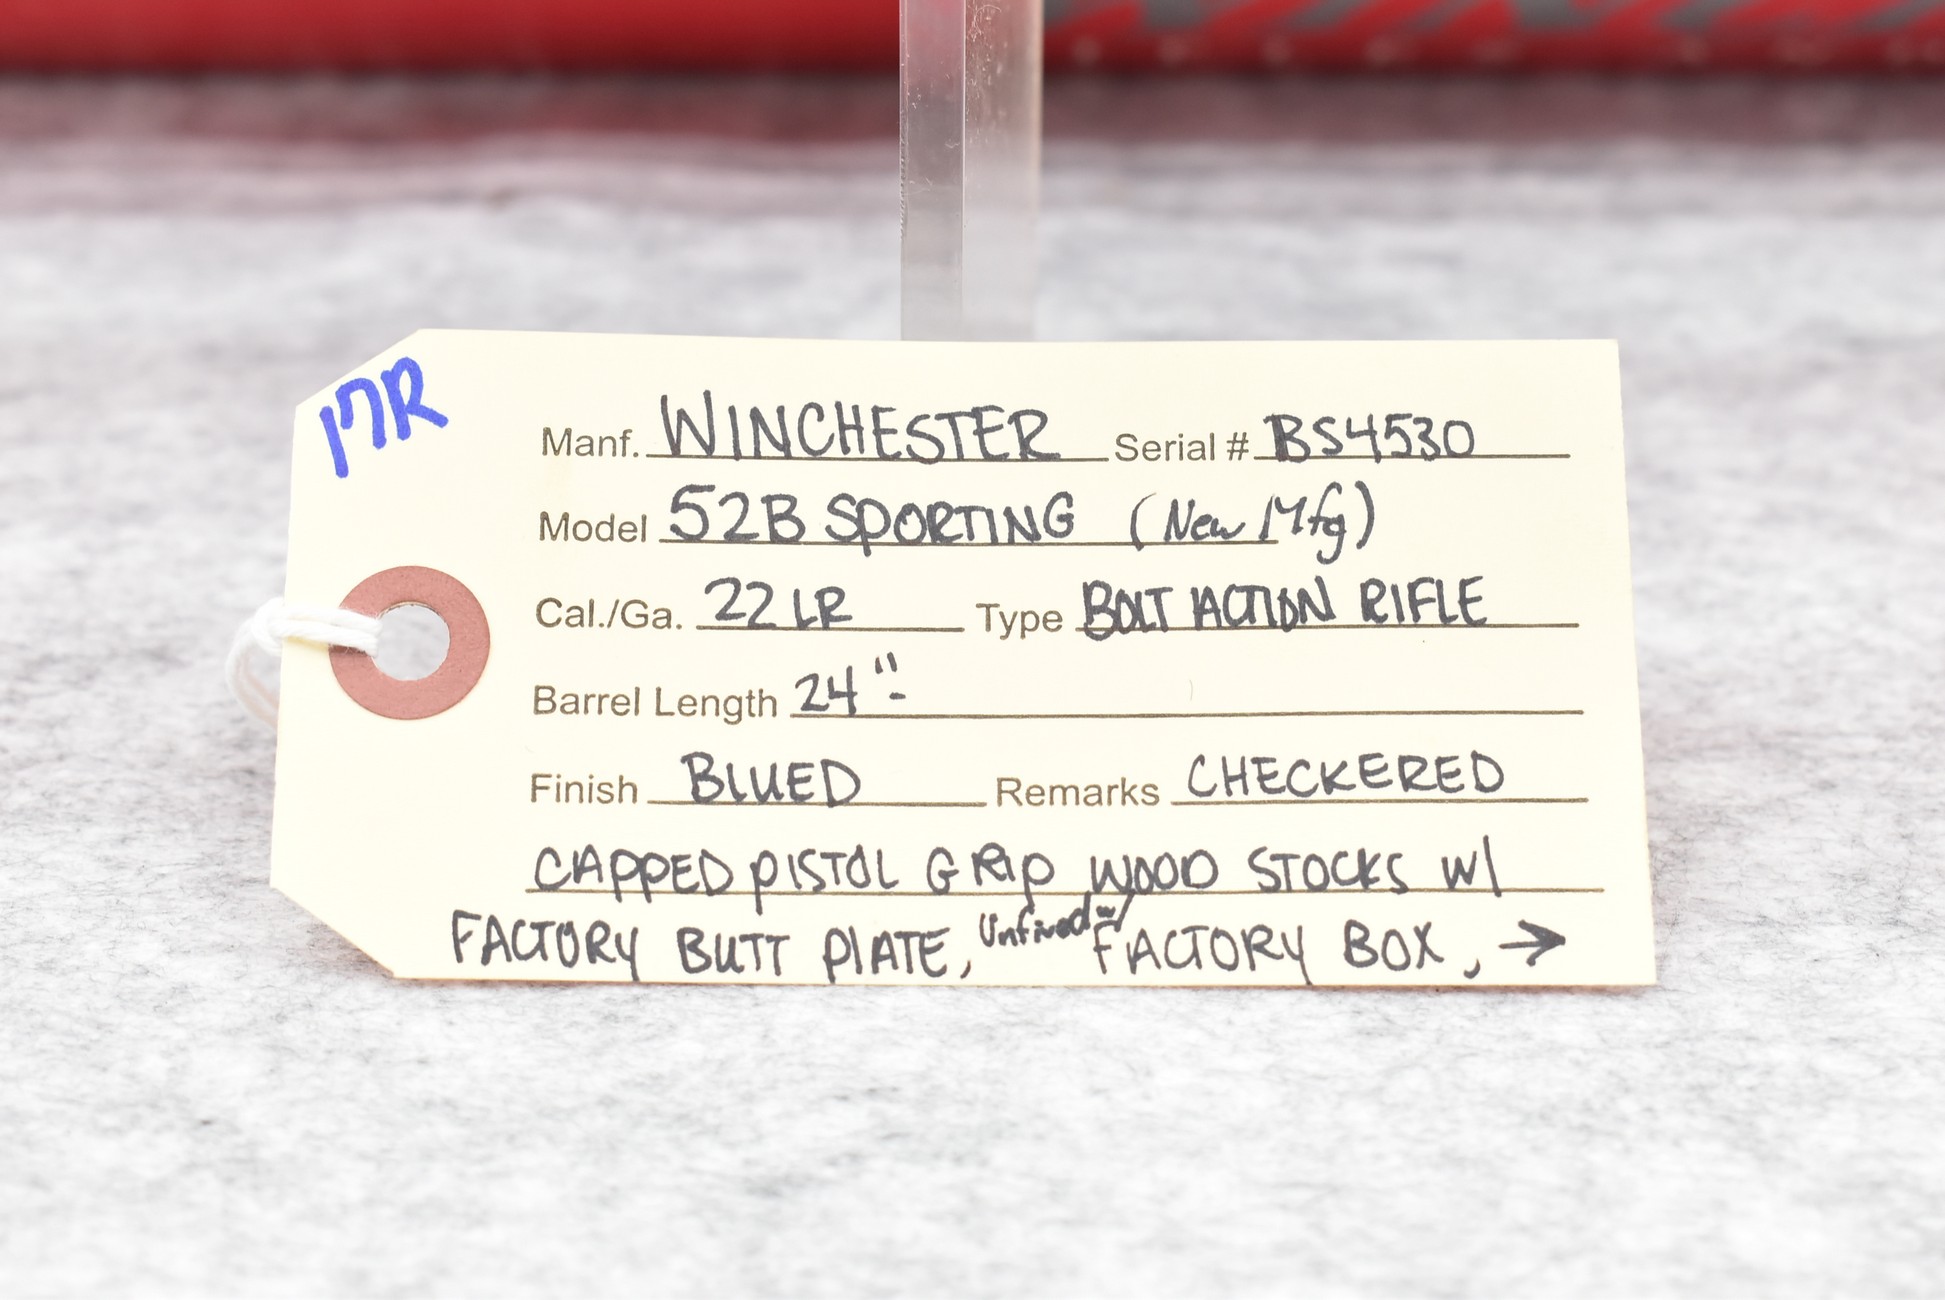 17R
Manf. WINCHESTER Serial # BS4530
Model 52B SPORTING (New Mfg)
Cal./Ga. 22 LR Type BOLT ACTION RIFLE
Barrel Length 24"
Finish BLUED Remarks CHECKERED
CAPPED PISTOL GRIP WOOD STOCKS w/
FACTORY BUTT PLATE, Unfired w/ FACTORY BOX, →